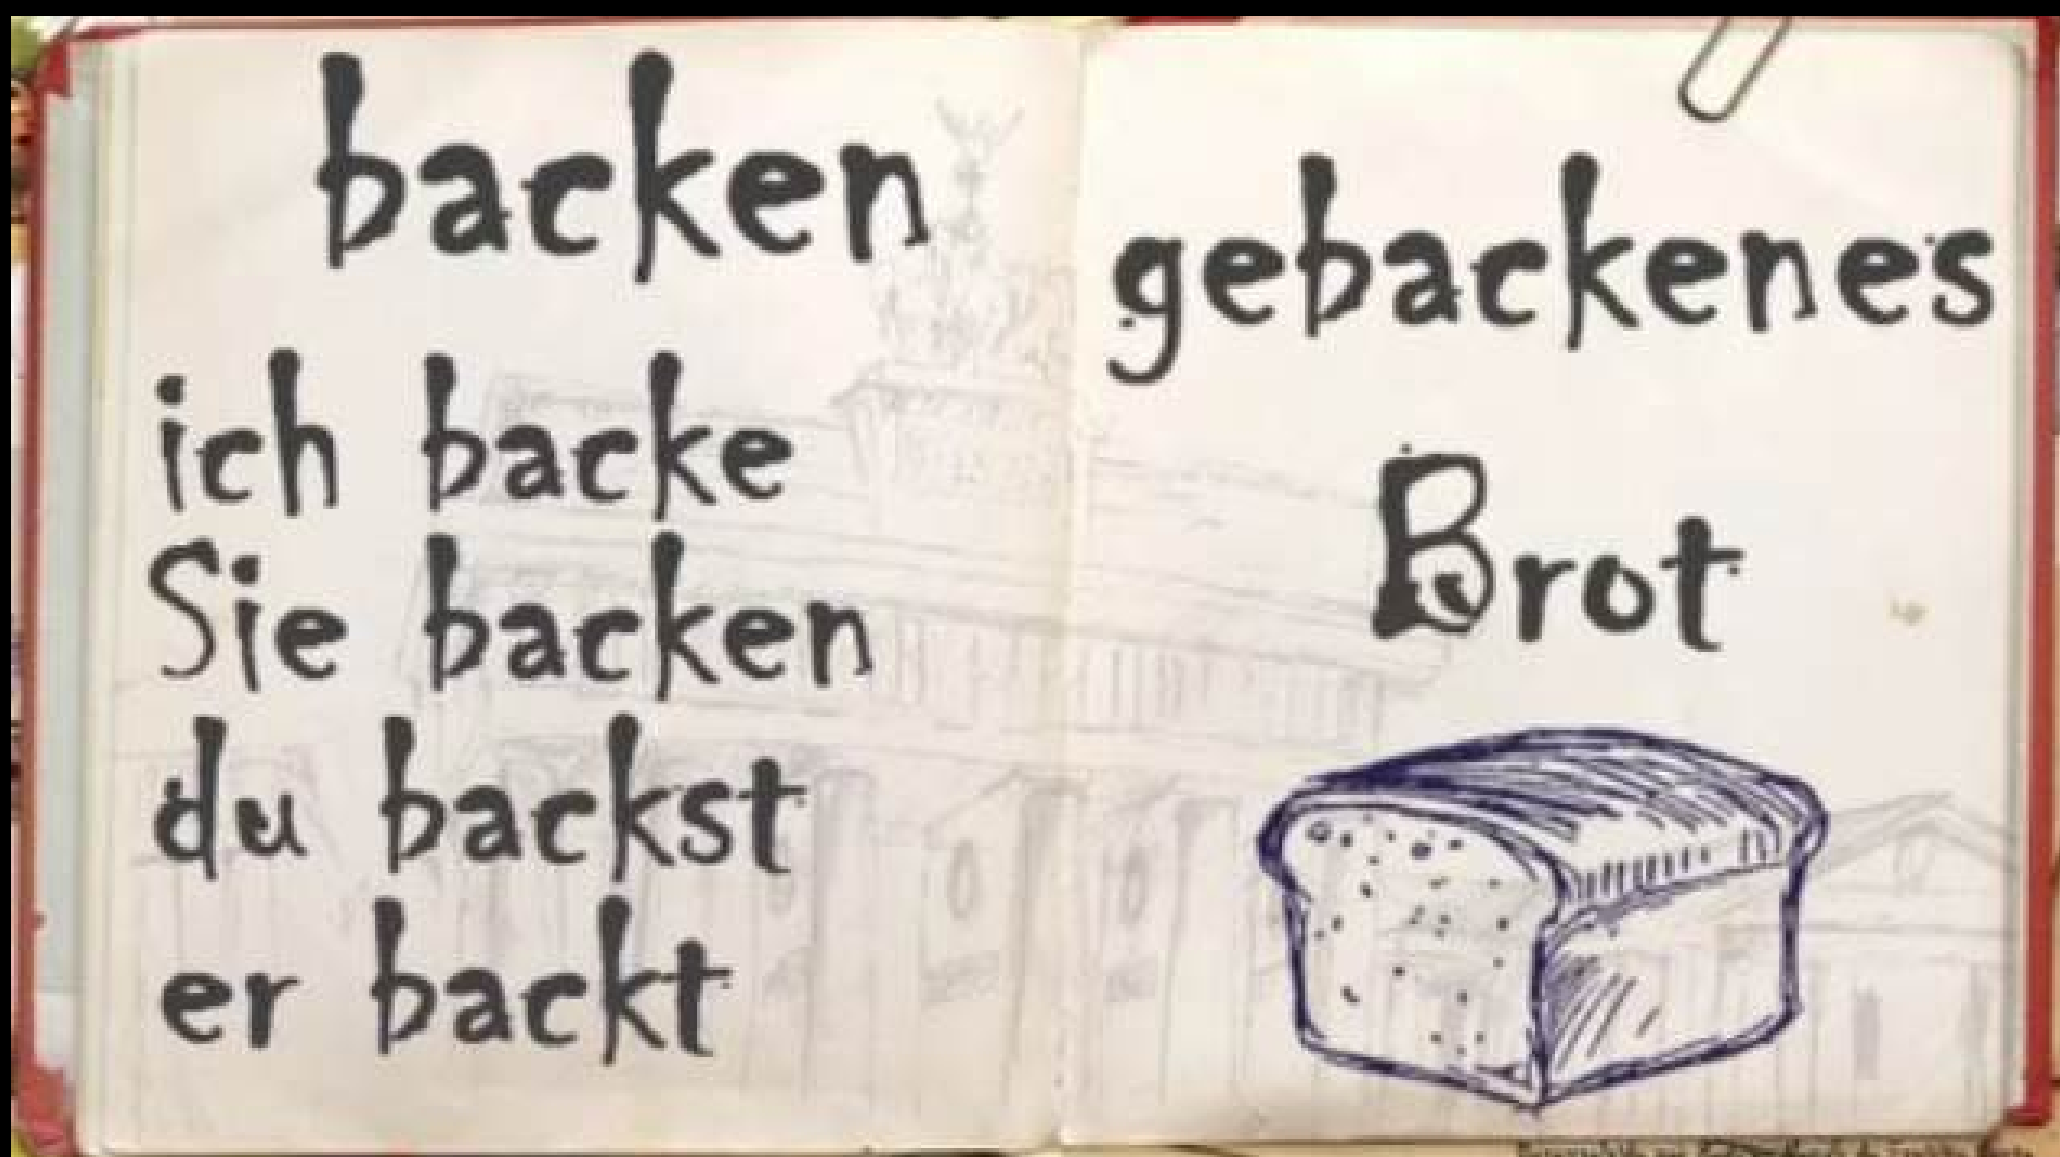 backen
ich backe
Sie backen
du backst
er backt
gebackenes
Brot